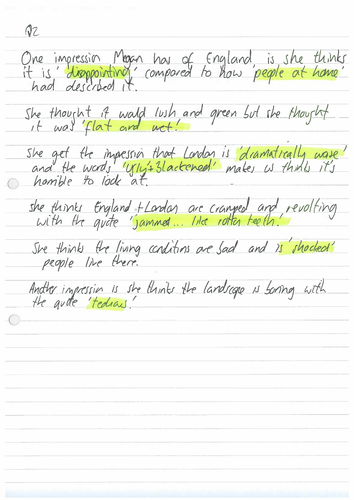 Q2
One impression Megan has of England is she thinks
it is 'disappointing' compared to how 'people at home'
had described it.
She thought it wald lush and green but she thought
it was 'flat and wet.'
She get the impression that London is 'dramatically worse'
and the words 'ugly & Blackened' makes us think it's
horrible to look at.
She thinks England + London are cramped and revolting
with the quote 'jammed... like rotten teeth.'
She thinks the living conditions are bad and is 'shocked'
people live there.
Another impression is she thinks the landscape is boring with
the quote 'tedious.'